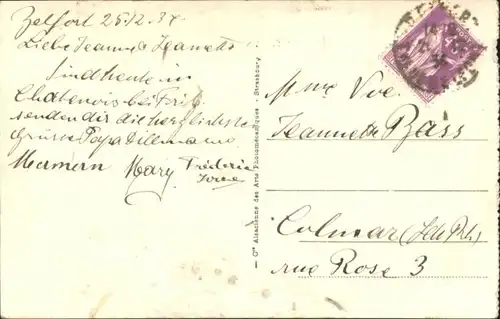 Belfort 25/12 34
Liebe Jeanne Jeanette
Sind heute in
Chatenois bei
senden dir die herzlichste
Grüsse Papa Dillmann
Mermern Mary Fréderic
Cie Alsacienne des Arts Photomécaniques - Strasbourg
Mme Vve.
Jeannette Bass
Colmar (Hte Rh.)
rue Rose 3